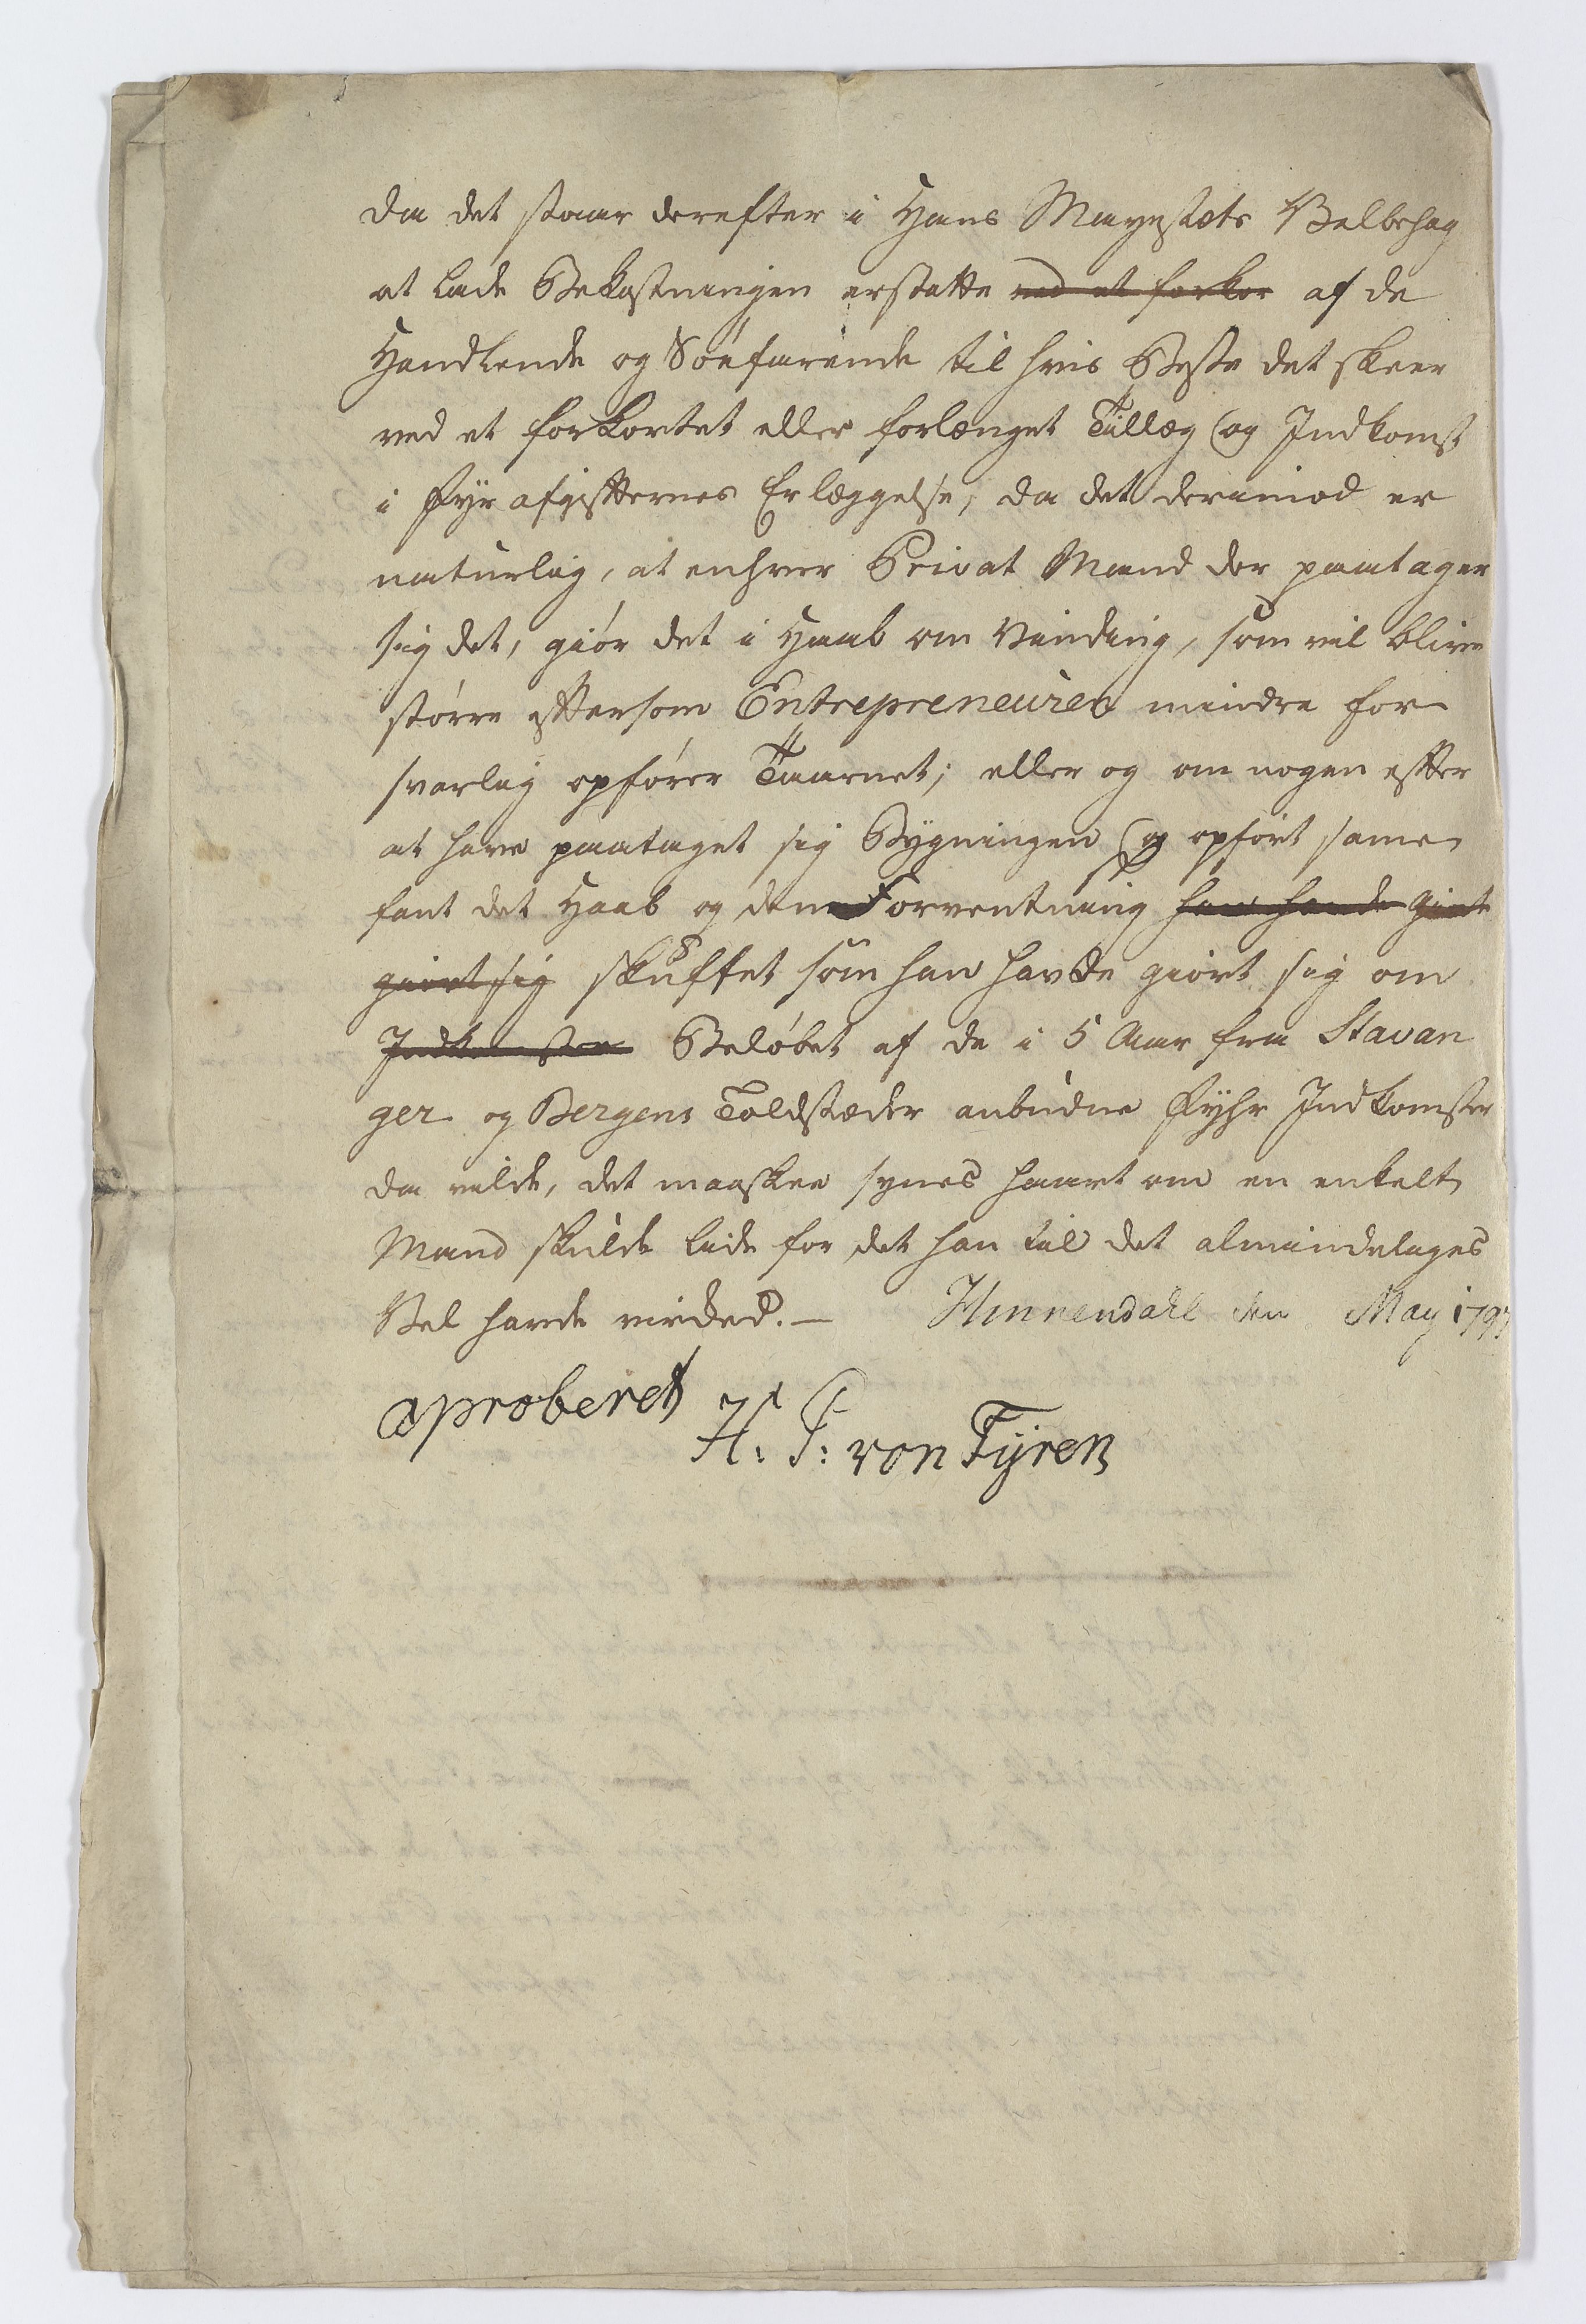 da det staar derefter i Hans Mayestæts Velbehag
at lade Bekostningen erstatte ved et forkor af de
Handlende og Søefarende til hvis Beste det skeer
ved et forkortet eller forlænget Tillæg (og Indkomst
i Fyr afgifternes Erlæggelse, da det derimod er
naturlig, at enhver Privat Mand der paatager
sig det, giør det i Haab om Vinding, som vil blive
større eftersom Entrepreneuren mindre for
svarlig opfører Taarnet; eller og om nogen efter
at have paataget sig Bygningen og opført same
fant det Haab og den Forventning han hafde giort
giort sig skuffet som han havde giort sig om
Indkomsten Beløbet af de i 5 Aar fra Stavan
ger og Bergens Toldstæder anbudne Fyhr Indkomster
da vilde, det maaskee synes haart om en enkelt
Mand skulde lide for det han til det almindeliges
Vel havde virded. — Hunnendahl den May 1797
aproberet H: P: von Fyren